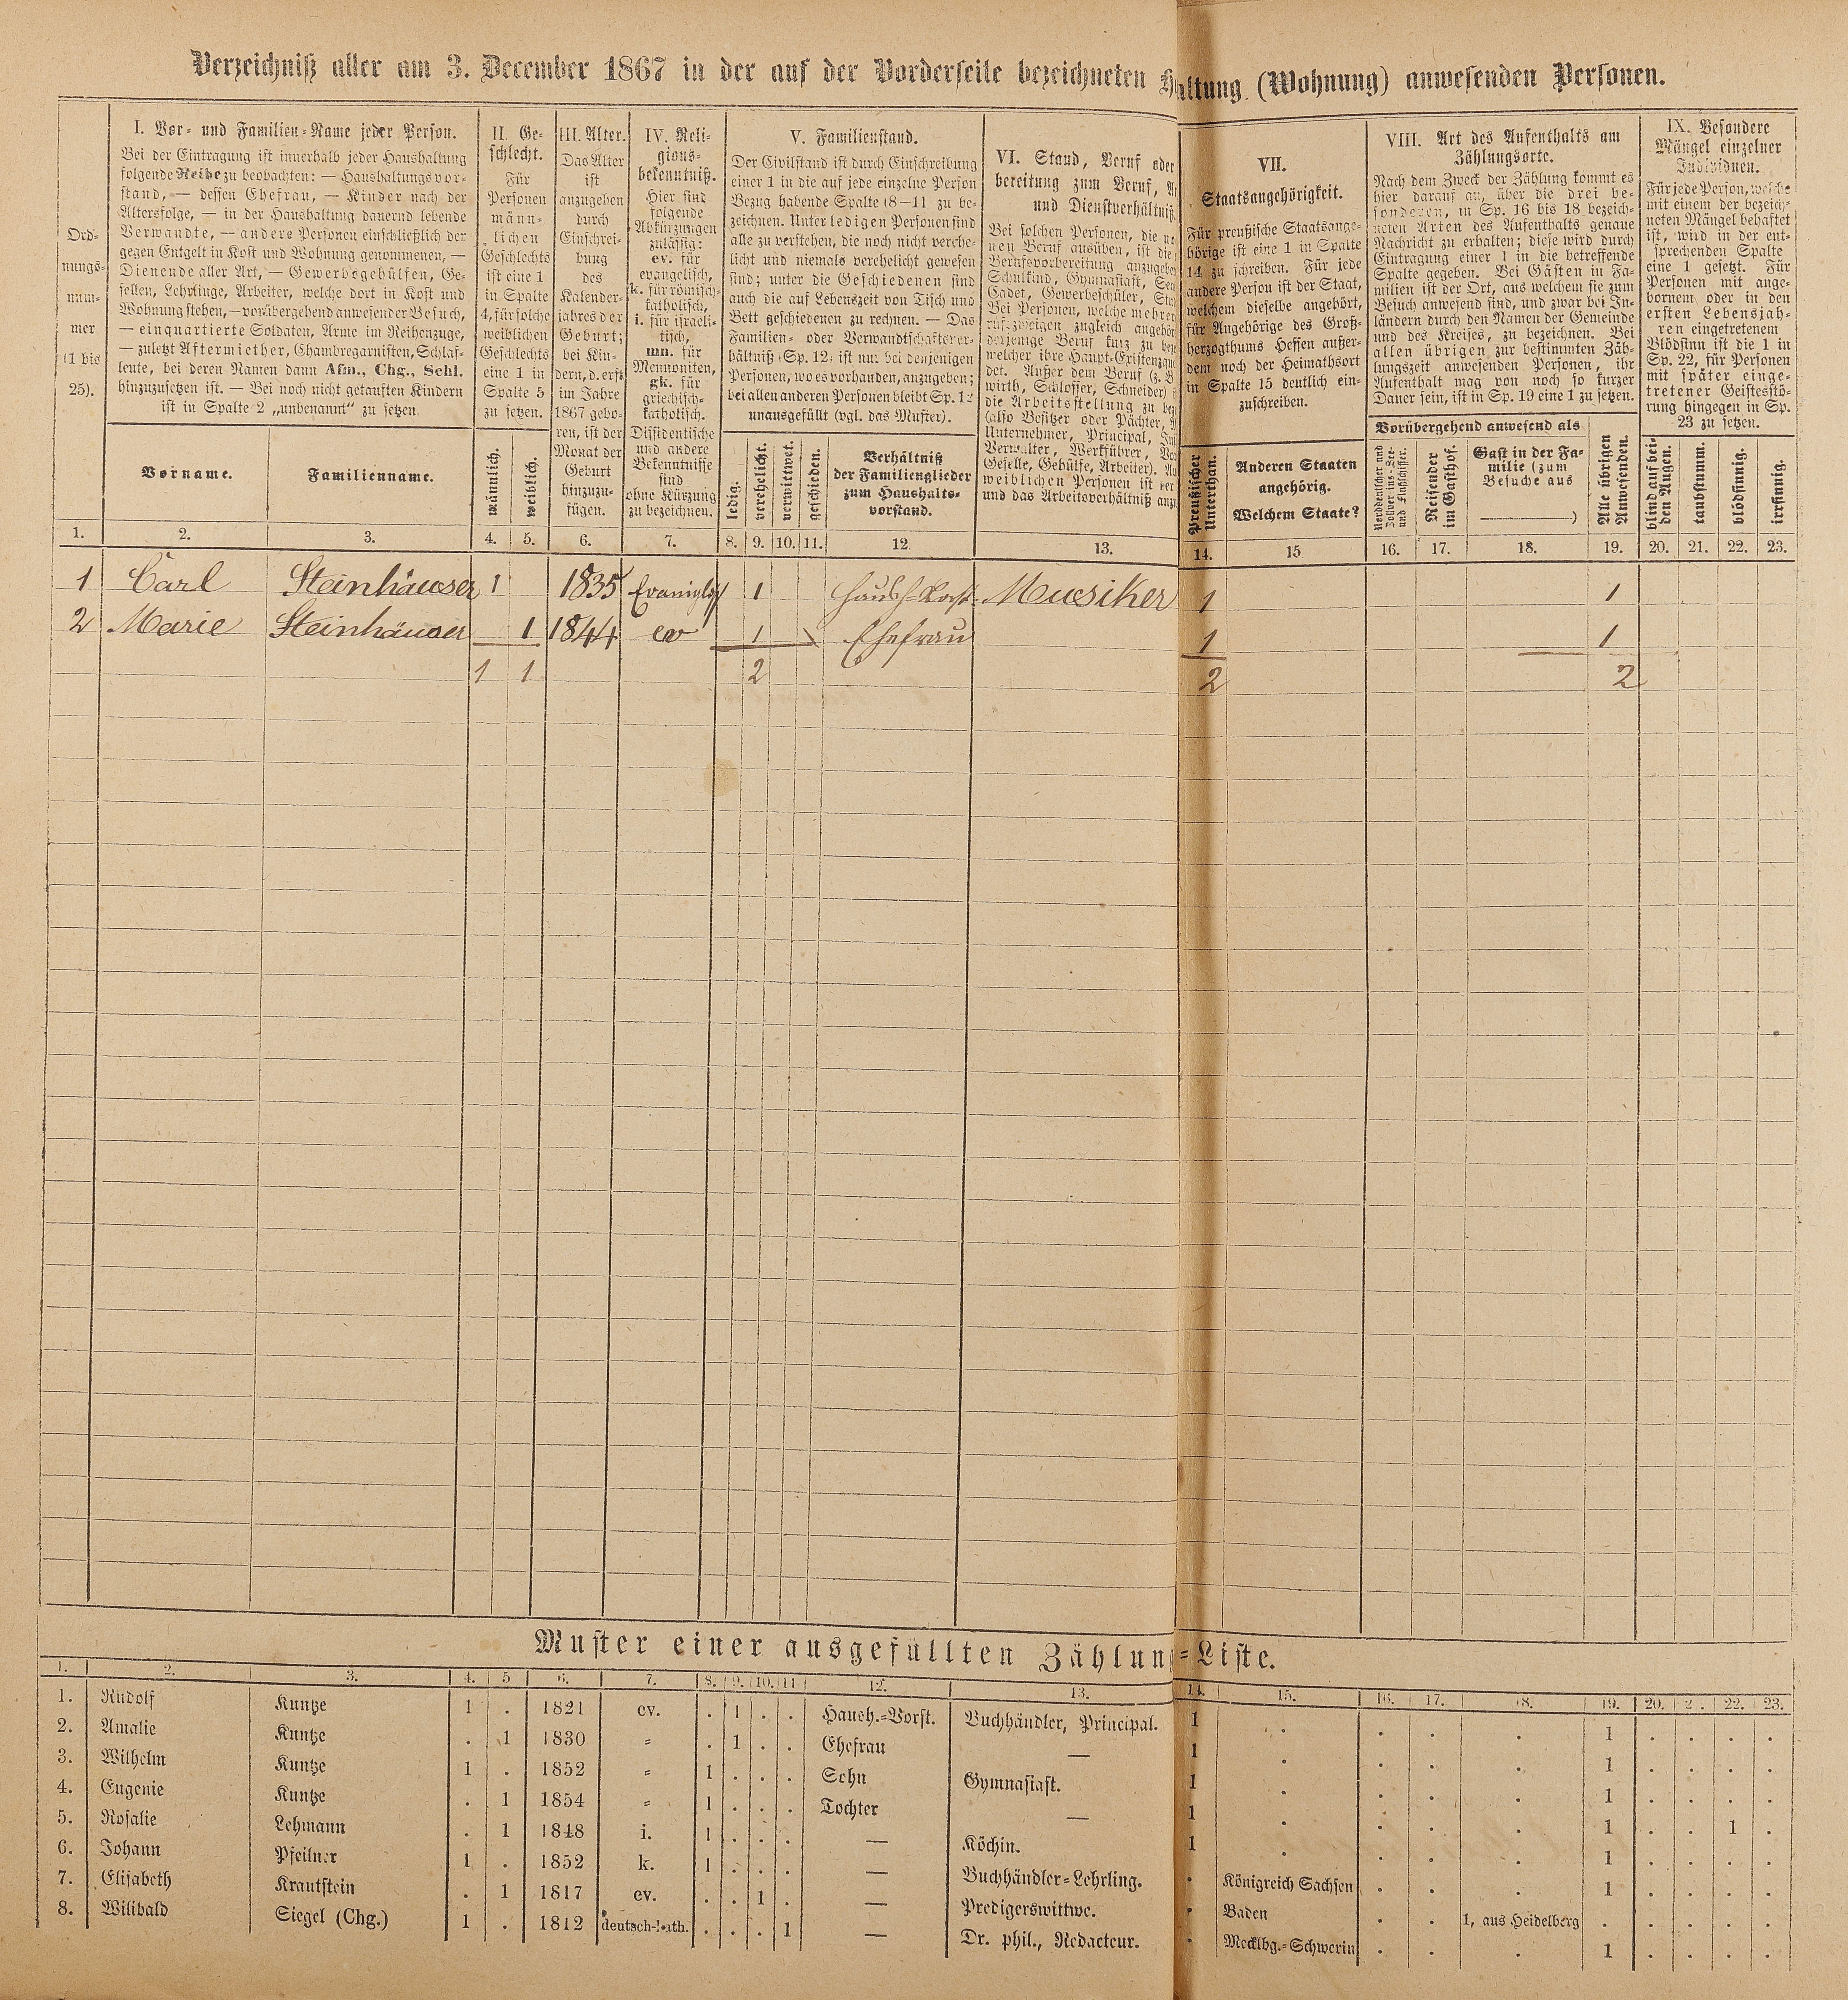 Verzeichniß aller am 3. December 1867 in der auf der Vorderseite bezeichneten Haltung (Wohnung) anwesenden Personen.
Ord-
nungs-
num-
mer
(1 bis
25).
I. Vor- und Familien-Name jeder Person.
Bei der Eintragung ist innerhalb jeder Haushaltung
folgende Reihe zu beobachten: — Haushaltungsvor-
stand, — dessen Ehefrau, — Kinder nach der
Altersfolge, — in der Haushaltung dauernd lebende
Verwandte, — andere Personen einschließlich der
gegen Entgelt in Kost und Wohnung genommenen, —
Dienende aller Art, — Gewerbsgehülfen, Ge-
sellen, Lehrlinge, Arbeiter, welche dort in Kost und
Wohnung stehen, — vorübergehend anwesender Besuch,
— einquartierte Soldaten, Arme im Reihenzuge,
— zuletzt Aftermiether, Chambregarnisten, Schlaf-
leute, bei deren Namen dann Afm., Chg., Schl.
hinzuzusetzen ist. — Bei noch nicht getauften Kindern
ist in Spalte 2 „unbenannt“ zu setzen.
Vorname.
Familienname.
II. Ge-
schlecht.
Für
Personen
männ-
lichen
Geschlechts
ist eine 1
in Spalte
4, für solche
weiblichen
Geschlechts
eine 1 in
Spalte 5
zu setzen.
männlich.
weiblich.
III. Alter.
Das Alter
ist
anzugeben
durch
Einschrei-
bung
des
Kalender-
jahres der
Geburt;
bei Kin-
dern, d. erst
im Jahre
1867 gebo-
ren, ist der
Monat der
Geburt
hinzuzu-
fügen.
IV. Reli-
gions-
bekenntniß.
Hier sind
folgende
Abkürzungen
zulässig:
ev. für
evangelisch,
k. für römisch-
katholisch,
i. für israeli-
tisch,
mn. für
Mennoniten,
gk. für
griechisch-
katholisch.
Dissidentische
und andere
Bekenntnisse
sind
ohne Kürzung
zu bezeichnen.
V. Familienstand.
Der Civilstand ist durch Einschreibung
einer 1 in die auf jede einzelne Person
Bezug habende Spalte (8—11) zu be-
zeichnen. Unter ledigen Personen sind
alle zu verstehen, die noch nicht verehe-
licht und niemals verehelicht gewesen
sind; unter die Geschiedenen sind
auch die auf Lebenszeit von Tisch und
Bett geschiedenen zu rechnen. — Das
Familien- oder Verwandtschaftsver-
hältniß (Sp. 12) ist nur bei denjenigen
Personen, wo es vorhanden, anzugeben;
bei allen anderen Personen bleibt Sp. 12
unausgefüllt (vgl. das Muster).
ledig.
verehelicht.
verwittwet.
geschieden.
Verhältniß
der Familienglieder
zum Haushalts-
vorstand.
VI. Stand, Beruf oder
bereitung zum Beruf,
und Dienstverhältniß
Bei solchen Personen, die
nen Beruf ausüben, ist die
Berufsvorbereitung anzugeben
Schulkind, Gymnasiast,
Cadet, Gewerbeschüler,
Bei Personen, welche mehrer
rufszweigen zugleich angehör
derjenige Beruf kurz zu
welcher ihre Haupt-Existenz
det. Außer dem Beruf (z. B
wirth, Schlosser, Schneider)
die Arbeitsstellung zu
(also Besitzer oder Pächter,
Unternehmer, Principal,
Verwalter, Werkführer,
Geselle, Gehülfe, Arbeiter).
weiblichen Personen ist
und das Arbeitsverhältniß
VII.
Staatsangehörigkeit.
Für preußische Staatsange-
hörige ist eine 1 in Spalte
14 zu schreiben. Für jede
andere Person ist der Staat,
welchem dieselbe angehört,
für Angehörige des Groß-
herzogthums Hessen außer-
dem noch der Heimathsort
in Spalte 15 deutlich ein-
zuschreiben.
Preußischer
Unterthan.
Anderen Staaten
angehörig.
Welchem Staate?
VIII. Art des Aufenthalts am
Zählungsorte.
Nach dem Zweck der Zählung kommt es
hier darauf an, über die drei be-
sonderen, in Sp. 16 bis 18 bezeich-
neten Arten des Aufenthalts genaue
Nachricht zu erhalten; diese wird durch
Eintragung einer 1 in die betreffende
Spalte gegeben. Bei Gästen in Fa-
milien ist der Ort, aus welchem sie zum
Besuch anwesend sind, und zwar bei In-
ländern durch den Namen der Gemeinde
und des Kreises, zu bezeichnen. Bei
allen übrigen zur bestimmten Zäh-
lungszeit anwesenden Personen, ihr
Aufenthalt mag von noch so kurzer
Dauer sein, ist in Sp. 19 eine 1 zu setzen.
Vorübergehend anwesend als
Norddeutscher und
Zollvereins-See-
und Flußschiffer.
Reisender
im Gasthof.
Gast in der Fa-
milie (zum
Besuche aus
)
Alle übrigen
Anwesenden.
IX. Besondere
Mängel einzelner
Individuen.
Für jede Person, welche
mit einem der bezeich-
neten Mängel behaftet
ist, wird in der ent-
sprechenden Spalte
eine 1 gesetzt. Für
Personen mit ange-
bornem oder in den
ersten Lebensjah-
ren eingetretenem
Blödsinn ist die 1 in
Sp. 22, für Personen
mit später einge-
tretener Geistesstö-
rung hingegen in Sp.
23 zu setzen.
blind auf bei-
den Augen.
taubstumm.
blödsinnig.
irrsinnig.
1. 2. 3. 4. 5. 6. 7. 8. 9. 10. 11. 12. 13. 14. 15. 16. 17. 18. 19. 20. 21. 22. 23.
1 Carl Steinhäuser 1 1835 1 Haush-Vorst. Musiker 1 1
2 Marie Steinhäuser 1 1844 ev 1 Ehefrau 1 1
1 1 2 2 2
Muster einer ausgefüllten Zählun=Liste.
1. 2. 3. 4. 5. 6. 7. 8. 9. 10. 11. 12. 13. 14. 15. 16. 17. 18. 19. 20. 2. 22. 23.
1. Rudolf Kuntze 1 . 1821 ev. . 1 . . Haush.=Vorst. Buchhändler, Principal. 1 . . . . 1 . . . .
2. Amalie Kuntze . 1 1830 " . 1 . . Ehefrau — 1 . . . . 1 . . . .
3. Wilhelm Kuntze 1 . 1852 " 1 . . . Sohn Gymnasiast. 1 . . . . 1 . . . .
4. Eugenie Kuntze . 1 1854 " 1 . . . Tochter — 1 . . . . 1 . . 1 .
5. Rosalie Lehmann . 1 1848 i. 1 . . . — Köchin. 1 . . . . 1 . . . .
6. Johann Pfeilner 1 . 1852 k. 1 . . . — Buchhändler=Lehrling. . Königreich Sachsen . . . 1 . . . .
7. Elisabeth Krautstein . 1 1817 ev. . . 1 . — Predigerswittwe. . Baden . . 1, aus Heidelberg . . . . .
8. Wilibald Siegel (Chg.) 1 . 1812 deutsch-kath. . . . 1 — Dr. phil., Redacteur. . Mecklbg.=Schwerin . . . 1 . . . .